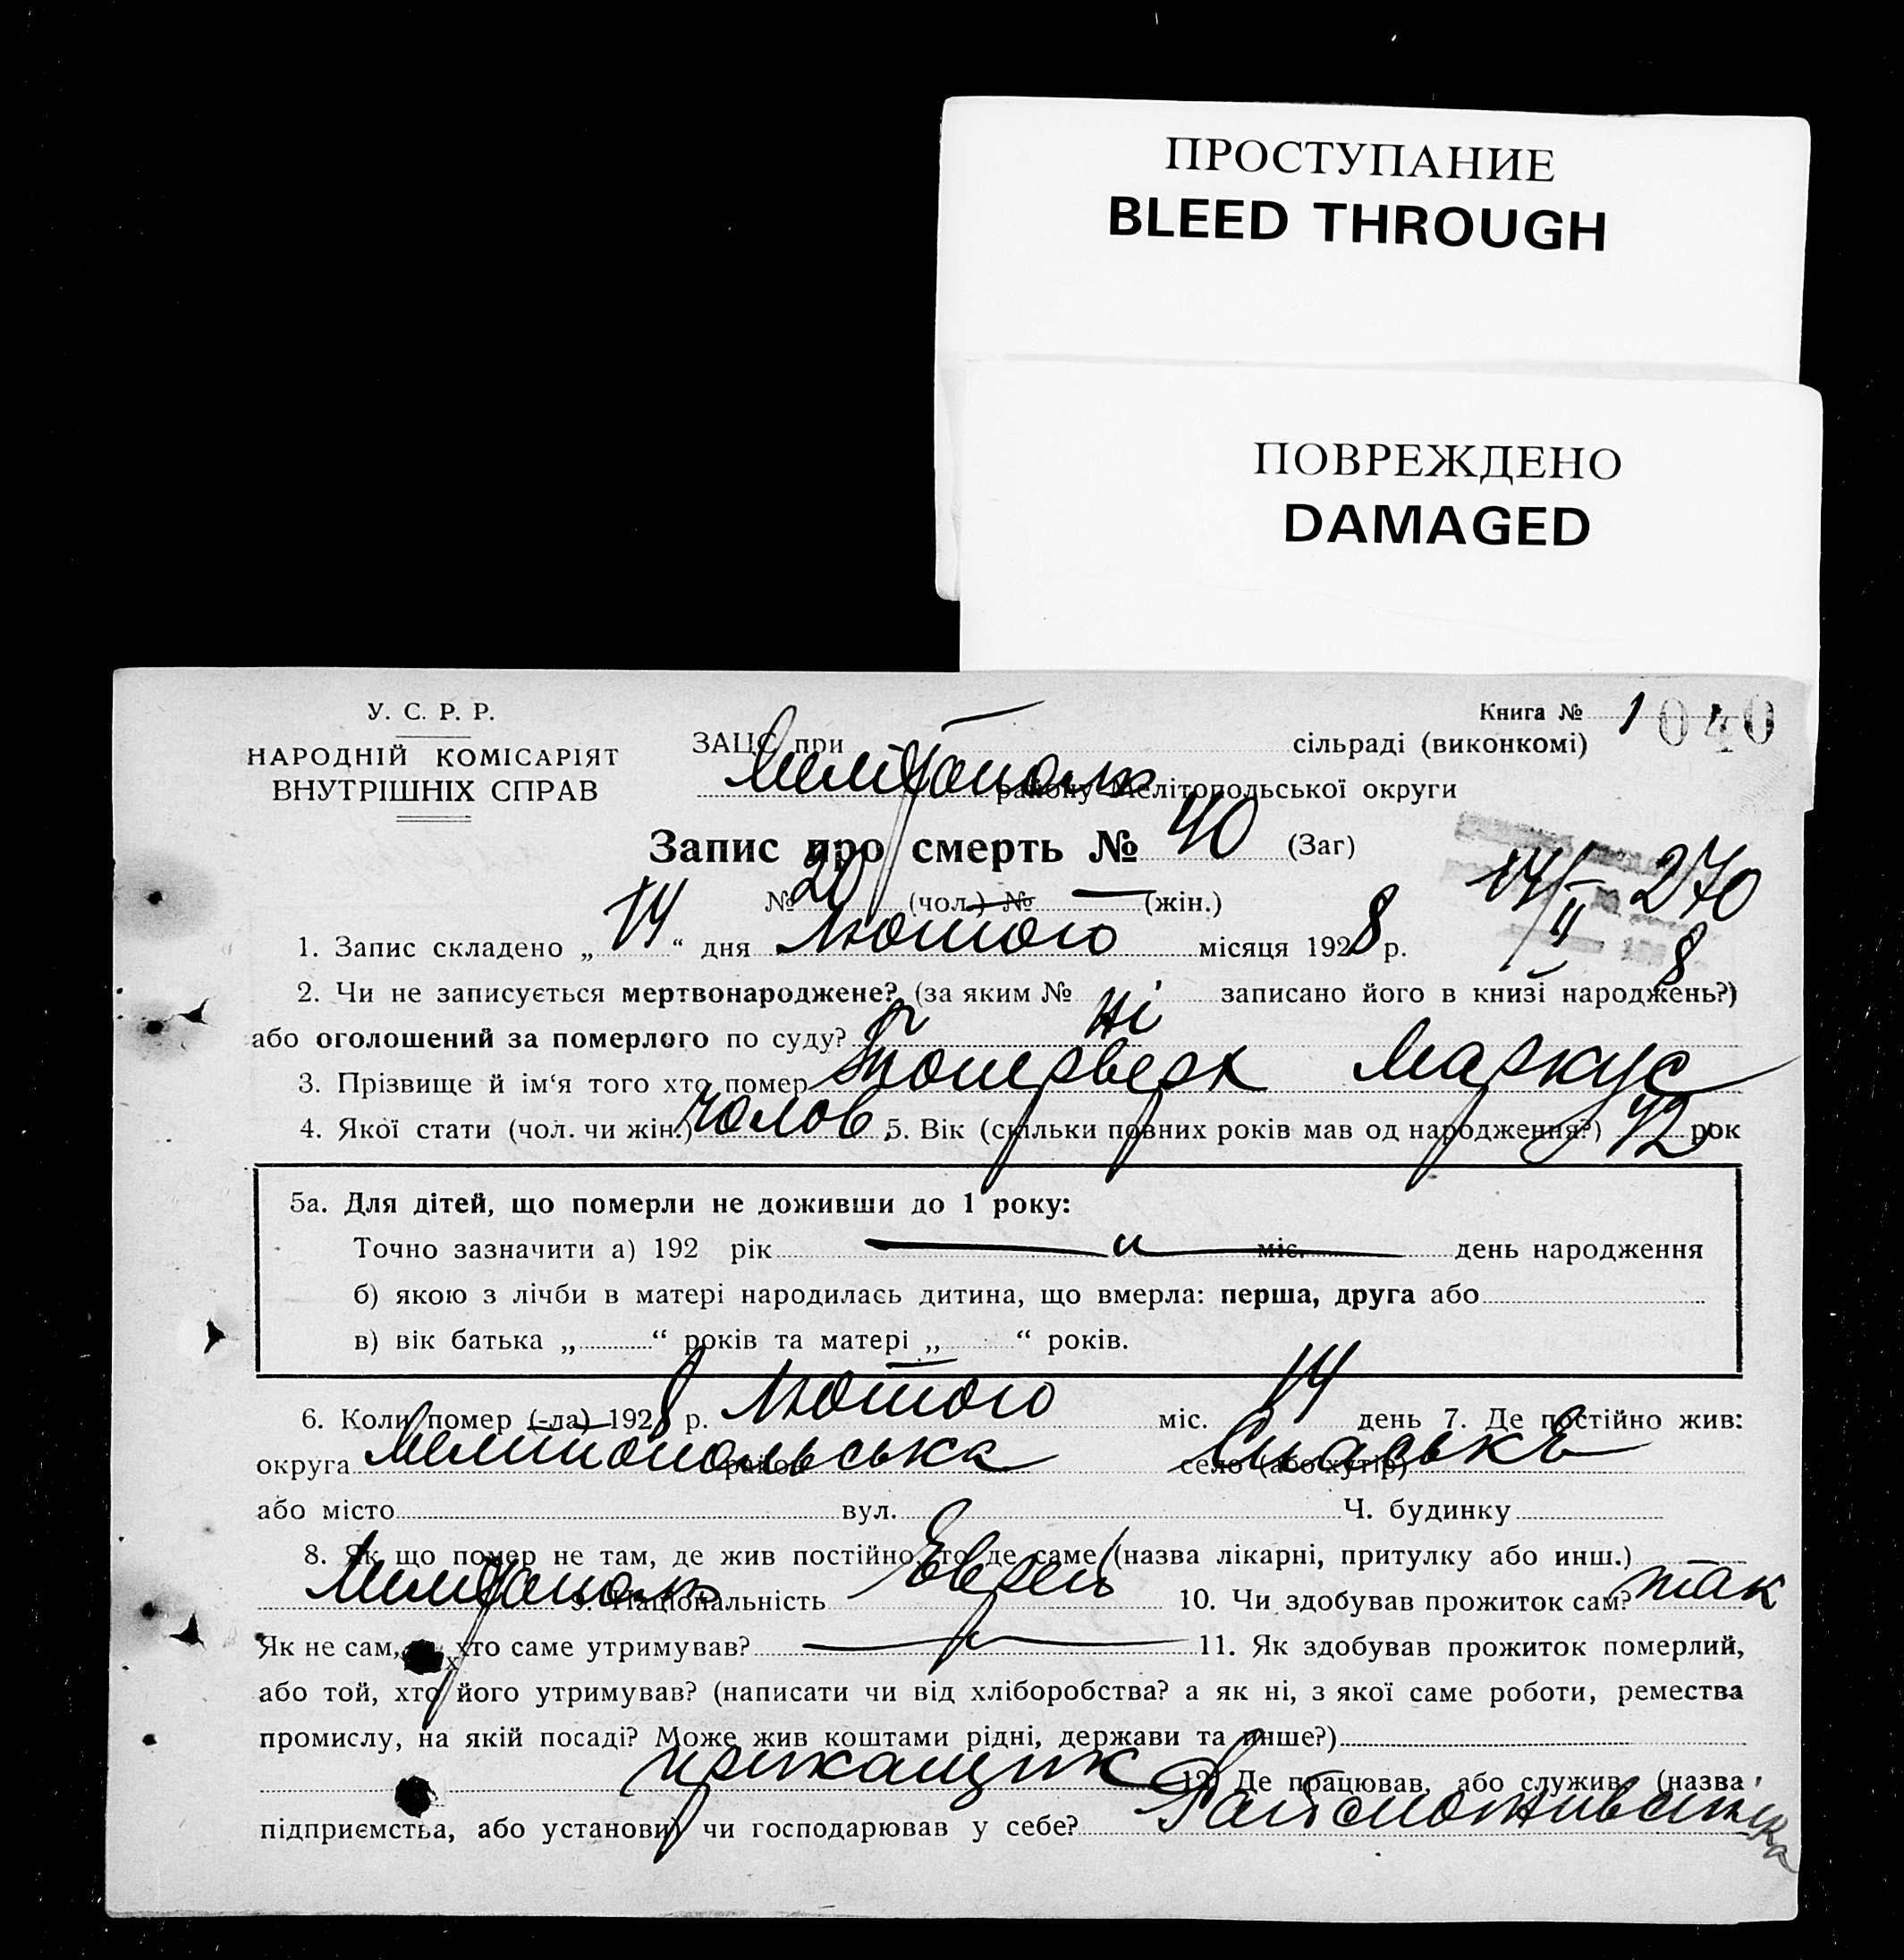 ПРОСТУПАНИЕ
BLEED THROUGH
ПОВРЕЖДЕНО
DAMAGED
У. С. Р. Р.
НАРОДНІЙ КОМІСАРІЯТ
ВНУТРІШНІХ СПРАВ
Книга № 1 040
ЗАЦС при сільраді (виконкомі)
Мелітополь району Мелітопольської округи
Запис про смерть № 40 (Заг)
№ 20 (чол.) № — (жін.)
14/II 270
8
1. Запис складено „14“ дня Лютого місяця 1928 р.
2. Чи не записується мертвонароджене? (за яким № записано його в книзі народжень?)
або оголошений за померлого по суду? Ні
3. Прізвище й ім‘я того хто помер Маркус
4. Якої стати (чол. чи жін.) чолов. 5. Вік (скільки повних років мав од народження?) 42 рок
5а. Для дітей, що померли не доживши до 1 року:
Точно зазначити а) 192 рік міс. день народження
б) якою з лічби в матері народилась дитина, що вмерла: перша, друга або
в) вік батька „ “ років та матері „ “ років.
6. Коли помер (-ла) 1928 р. Лютого міс. 14 день 7. Де постійно жив:
округа Мелітопольська район село (або хутір) Спаське
або місто вул. Ч. будинку
8. Як що помер не там, де жив постійно, то де саме (назва лікарні, притулку або инш.)
Мелітополь 9. Національність Еврей 10. Чи здобував прожиток сам? так
Як не сам, хто саме утримував? — 11. Як здобував прожиток померлий,
або той, хто його утримував? (написати чи від хліборобства? а як ні, з якої саме роботи, ремества
промислу, на якій посаді? Може жив коштами рідні, держави та инше?)
прикащик 12. Де працював, або служив (назва
підприємства, або установи) чи господарював у себе? Райспоживспілка